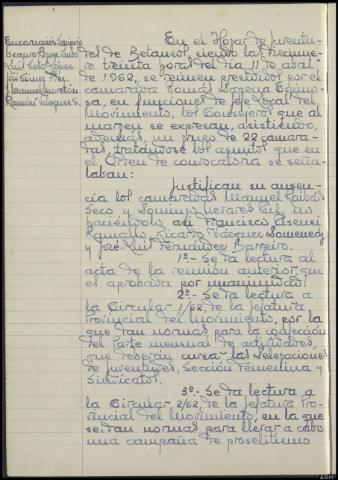 En el Hogar de Juventu-
des de Betanzos, siendo las diecinueve
treinta horas del día 11 de abril
de 1962, se reunen presididos por el
camarada Tomás Dapena Espino-
sa, en funciones de Jefe Local del
Movimiento, los Consejeros que al
margen se expresan, asistiendo,
además, un grupo de 22 camara-
das, tratándose los asuntos que en
el Orden de convocatoria se seña-
laban:
José Gómez
Manuel
Ramón Vázquez S.
Justifican su ausen-
cia los camaradas Manuel
Seco y Domingo, no
haciéndolo así Francisco Asensi
Ricardo Vázquez
y José-Luis Fernández Barreiro.
1º.- Se da lectura al
acta de la reunión anterior, que
es aprobada por unanimidad.
2º.- Se da lectura a
la Circular 1/62 de la Jefatura
Provincial del Movimiento, por la
que dan normas para la confección
del parte mensual de actividades,
que deberán cursar las Delegaciones
de Juventudes, Sección Femenina y
Sindicatos.
3º.- Se da lectura a
la Circular 2/62 de la Jefatura Pro-
vincial del Movimiento, en la que
se dan normas para llevar a cabo
una campaña de proselitismo